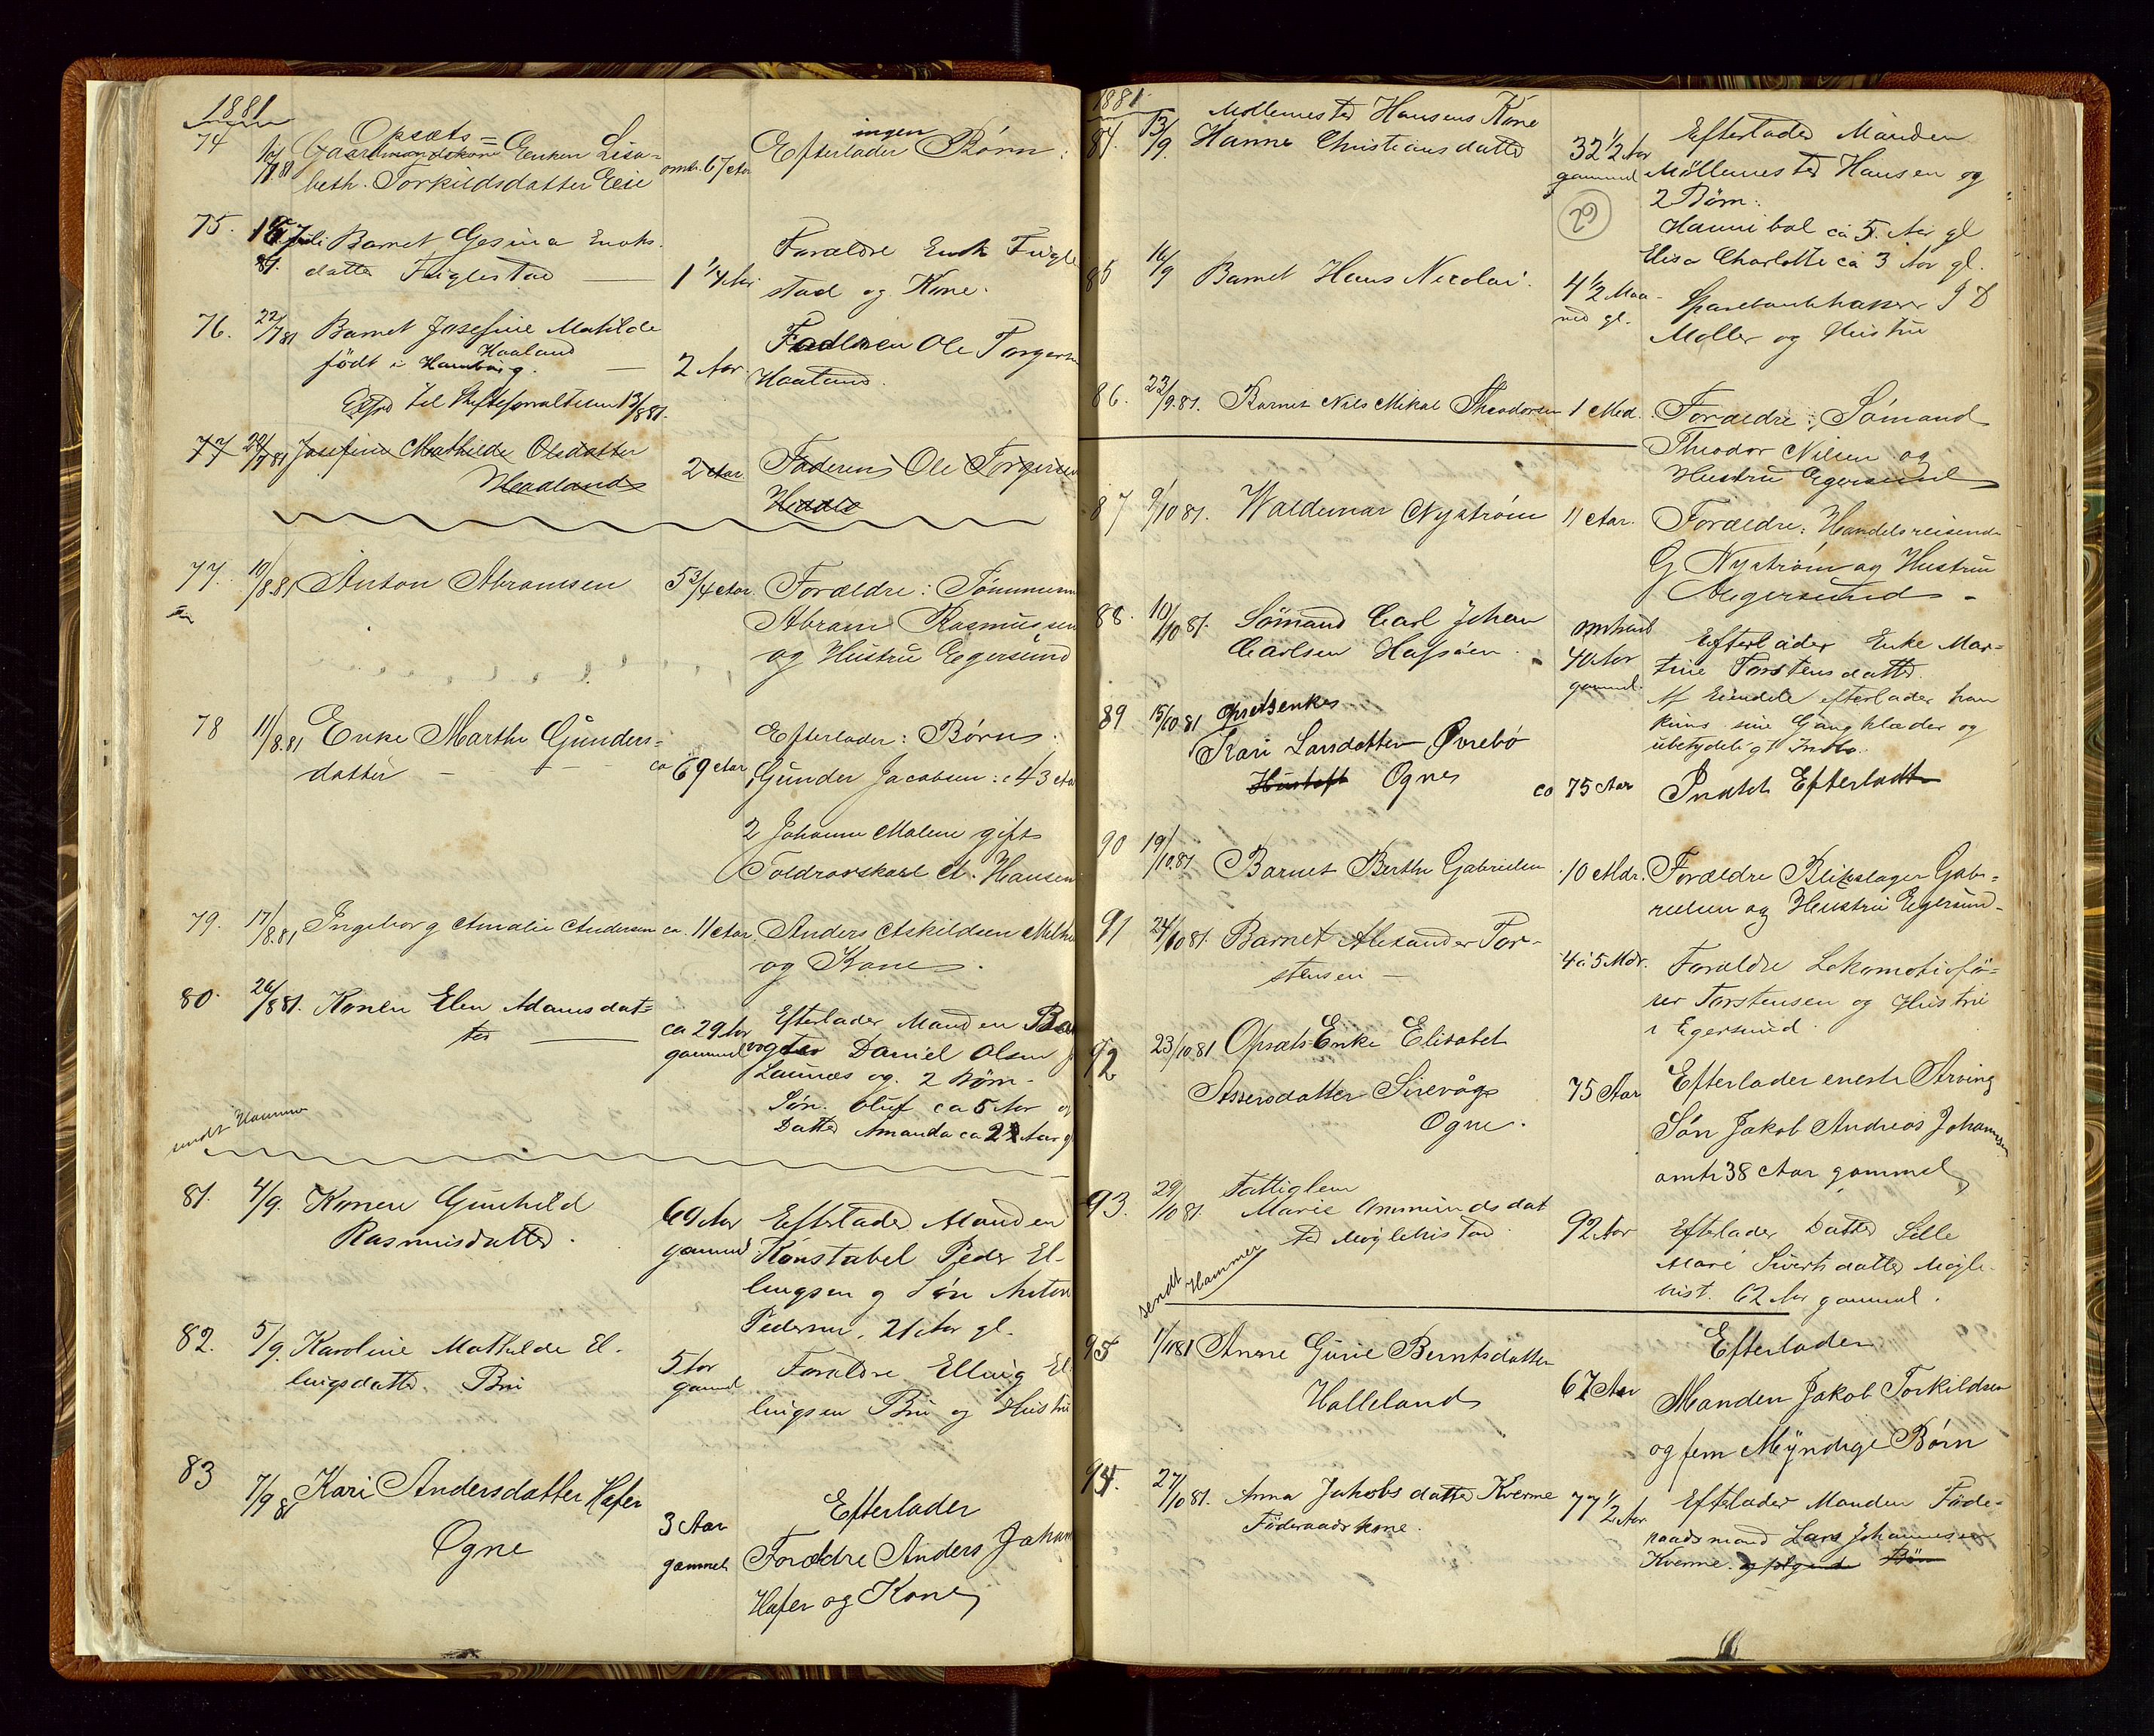 1881
74 10/7.81 Opsæts=
Gaardmandskone Enken Lisa=
beth. Torkildsdatter Eeie omtr. 67 Aar Efterlader ingen Børn:
75. 15 Juli 81. Barnet Gesina Enoks.
datter Fuglestad 1 1/4 Aar Forældre Enok Fugle
stad og Kone.
76. 22/7 81 Barnet Josefine Matilde
Haaland
født i Hamborg. 2 Aar. Faderen Ole Torgersen
Haaland.
til 13/8 81.
77 22/7 81 Josefine Mathilde Olsdatter
Haaland 2 Aar. Faderens Ole Torgersen
77. 10/8.81 Anton Abramsen 5 3/4 Aar. Forældre: Tømmerm
Abram Rasmussen
og Hustru Egersund
78 11/8.81 Enke Marthe Gunders=
datter ca 69 Aar Efterlader: Børn:
Gunder Jacobsen: c 43 Aar
2 Johanne Malene gift
Toldrorskarl A. Hansen
79. 17/8.81 Ingeborg Amalie Andersen ca. 11 Aar Anders Askildsen
og Kone.
80. 26/8 81. Konen Elen Adamsdat=
ter ca 29 Aar
gammel Efterlader Manden Ba
vogter Daniel Olsen
Launes og. 2 Børn.
Søn. Oluf ca 5 Aar og
Datter Amanda ca 2 Aar g
sendt Hammer
81. 4/9. Konen Gunhild
Rasmusdatter. 69 Aar
gammel Efterlader Manden
Konstabel Peder El-
lingsen og Søn Anton
Pedersen, 21 Aar gl.
82. 5/9. Karoline Mathilde El.
lingsdatter. Bru 5 Aar
gammel Forældre Elling El
lingsen Bru og Hustru
83 7/9 81 Kari Andersdatter Hafer
Ogne 3 Aar
gammel Efterlader
Forældre Anders Johan
Hafer og Kone
1881
84. 13/9. Møllemester Hansens Kone
Hanne Christiansdatter 32 1/2 Aar
gammel Efterlader Manden
Møllemester Hansen og
2 Børn:
Hannibal ca 5. Aar gl
Elisa Charlotte ca 3 Aar gl.
29
85 16/9 Barnet Hans Nicolai. 4 1/2 Maa-
ned gl. Sparebankkasser J D
Møller og Hustru
86. 22/9.81. Barnet Nils Mikal Theodorsen 1 Md. Forældre: Sømand
Theodor Nilsen og
Hustru Egersund
87 9/10 81. Waldemar Nystrøm 11 Aar. Forældre: Handelsreisende
G Nystrøm og Hustru
Egersund
88. 10/10 81. Sømand Carl Johan
Carlsen Hafsøen. omtrent
40 Aar
gammel. Efterlader Enke Mar=
tine Torstensdatter.
Af Eiendele efterlader han
kuns sine Gangklæder og
ubetydeligt Indbo.
89 15/10 81 Opsætsenke
Kari Larsdatter Ørebø
Ogne ca 75 Aar Intet Efterladt
90 19/10.81 Barnet Berthe Gabrielsen 10 Mdr. Forældre Blikslager Gabr=
rielsen og Hustru Egersund
91 24/10 81. Barnet Alexander Tor-
stensen 4 à 5 Mdr. Forældre Lokomotivfø=
rer Torstensen og Hustru
i Egersund.
92 23/10 81 Opsæts-Enke Elisabet
Assersdatter Sirevåg
Ogne. 75 Aar Efterlader eneste Arving
Søn Jakob Andreas Johannesen
omtr 38 Aar gammel
93. 29/10 81. Fattiglem
Marie Ommundsdat
ter Møglebustad 92 Aar Efterlader Datter Sille
Marie Sivertsdatter Mogle-
bust. 62 Aar gammel.
sendt Hammer
95 1/11 81 Anne Gurie Berntsdatter
Halleland 67 Aar Efterlader
Manden Jakob Torkildsen
og fem Myndige Børn
94. 27/10 81. Anna Jakobsdatter Kverme
Føderaadskone. 77 1/2 Aar Efterlader Manden Føde-
raadsmand Lars Johannesen
Kverme. og følgende Børn